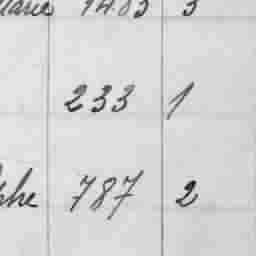 1483 3
233 1
787 2